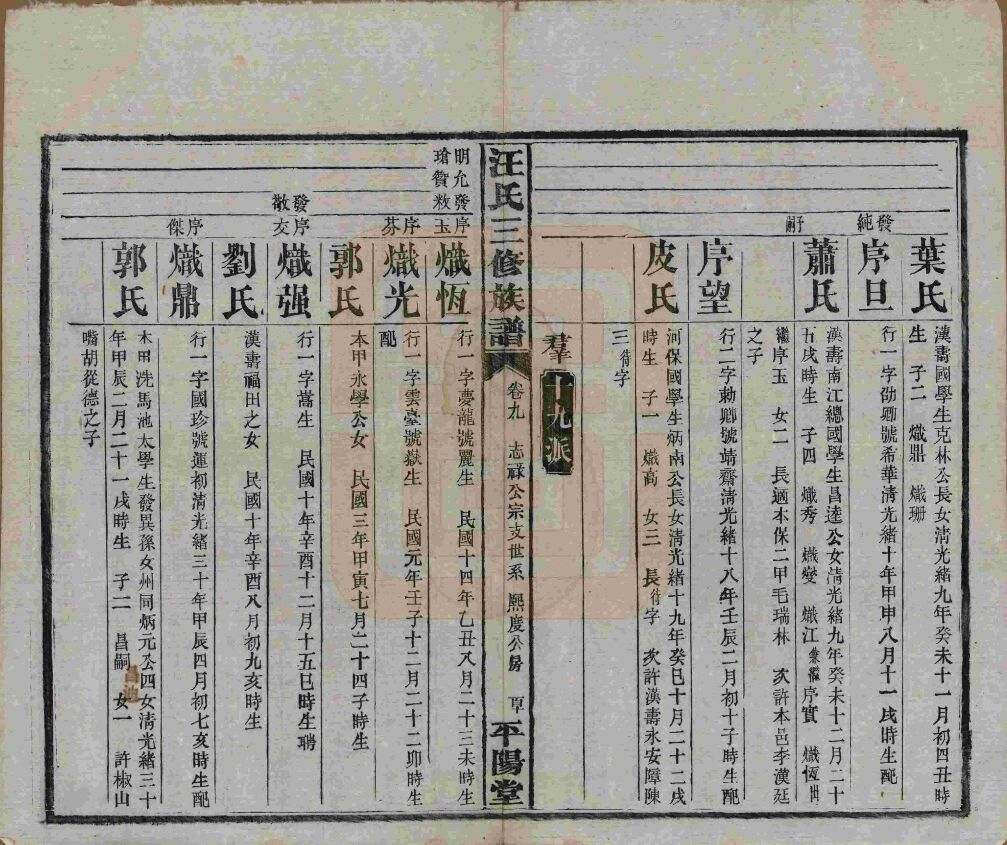 葉氏
漢壽國學生克林公長女清光緒九年癸未十一月初四丑時
生 子二 熾鼎 熾珊
發純
序旦
行一字劭卿號希華清光緒十年甲申八月十一戌時生配
嗣子
蕭氏
漢壽南江總國學生昌逵公女清光緒九年癸未十二月二十
五戌時生 子四 熾秀 熾燮 熾江兼繼序實 熾恆出
繼序玉 女二 長適本保二甲毛瑞林 次許本邑李漢廷
之子
序望
行二字勅卿號靖齋清光緒十八年壬辰二月初十子時生配
皮氏
河保國學生炳南公長女清光緒十九年癸巳十月二十二戌
時生 子一 熾高 女三 長待字 次許漢壽永安障陳
三待字
羣
十九派
汪氏三修族譜
卷九 志祿公宗支世系 熙慶公房
平陽堂
明允發序
瑲贊敉玉
熾恆
行一字夢龍號麗生 民國十四年乙丑八月二十三未時生
序芬
熾光
行一字雲臺號嶽生 民國元年壬子十二月二十二卯時生
配
郭氏
本甲永學公女 民國三年甲寅七月二十四子時生
發散
序友
熾强
行一字嵩生 民國十年辛酉十二月十五巳時生聘
劉氏
漢壽福田之女 民國十年辛酉八月初九亥時生
序傑
熾鼎
行一字國珍號運初清光緒三十年甲辰四月初七亥時生配
郭氏
本甲洗馬池太學生發異孫女州同炳元公四女清光緒三十
年甲辰二月二十一戌時生 子二 昌嗣 昌迪 女一 許椒山
嘴胡從德之子